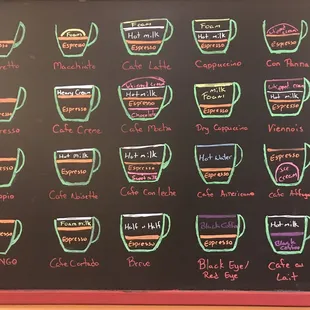 Foam
Espresso
Foam
Hot milk
Espresso
Foam
Hot milk
Espresso
Whipped cream
Espresso
Macchiato
Cafe Latte
Cappuccino
Con Panna
Heavy Cream
Espresso
Whipped cream
Hot milk
Espresso
Chocolate
Milk
Foam
Espresso
Whipped cream
Hot milk
Espresso
Cafe Creme
Cafe Mocha
Dry Cappuccino
Viennois
Hot milk
Espresso
Hot milk
Espresso
Sweet milk
Hot Water
Espresso
Espresso
ice
cream
Cafe Noisette
Cafe Con leche
Cafe Americano
Cafe Affog
Foam milk
Espresso
Half n Half
Espresso
Black Coffee
Espresso
Hot milk
Black
Coffee
NGO
Cafe Cortado
Breve
Black Eye/
Red Eye
Cafe au
Lait